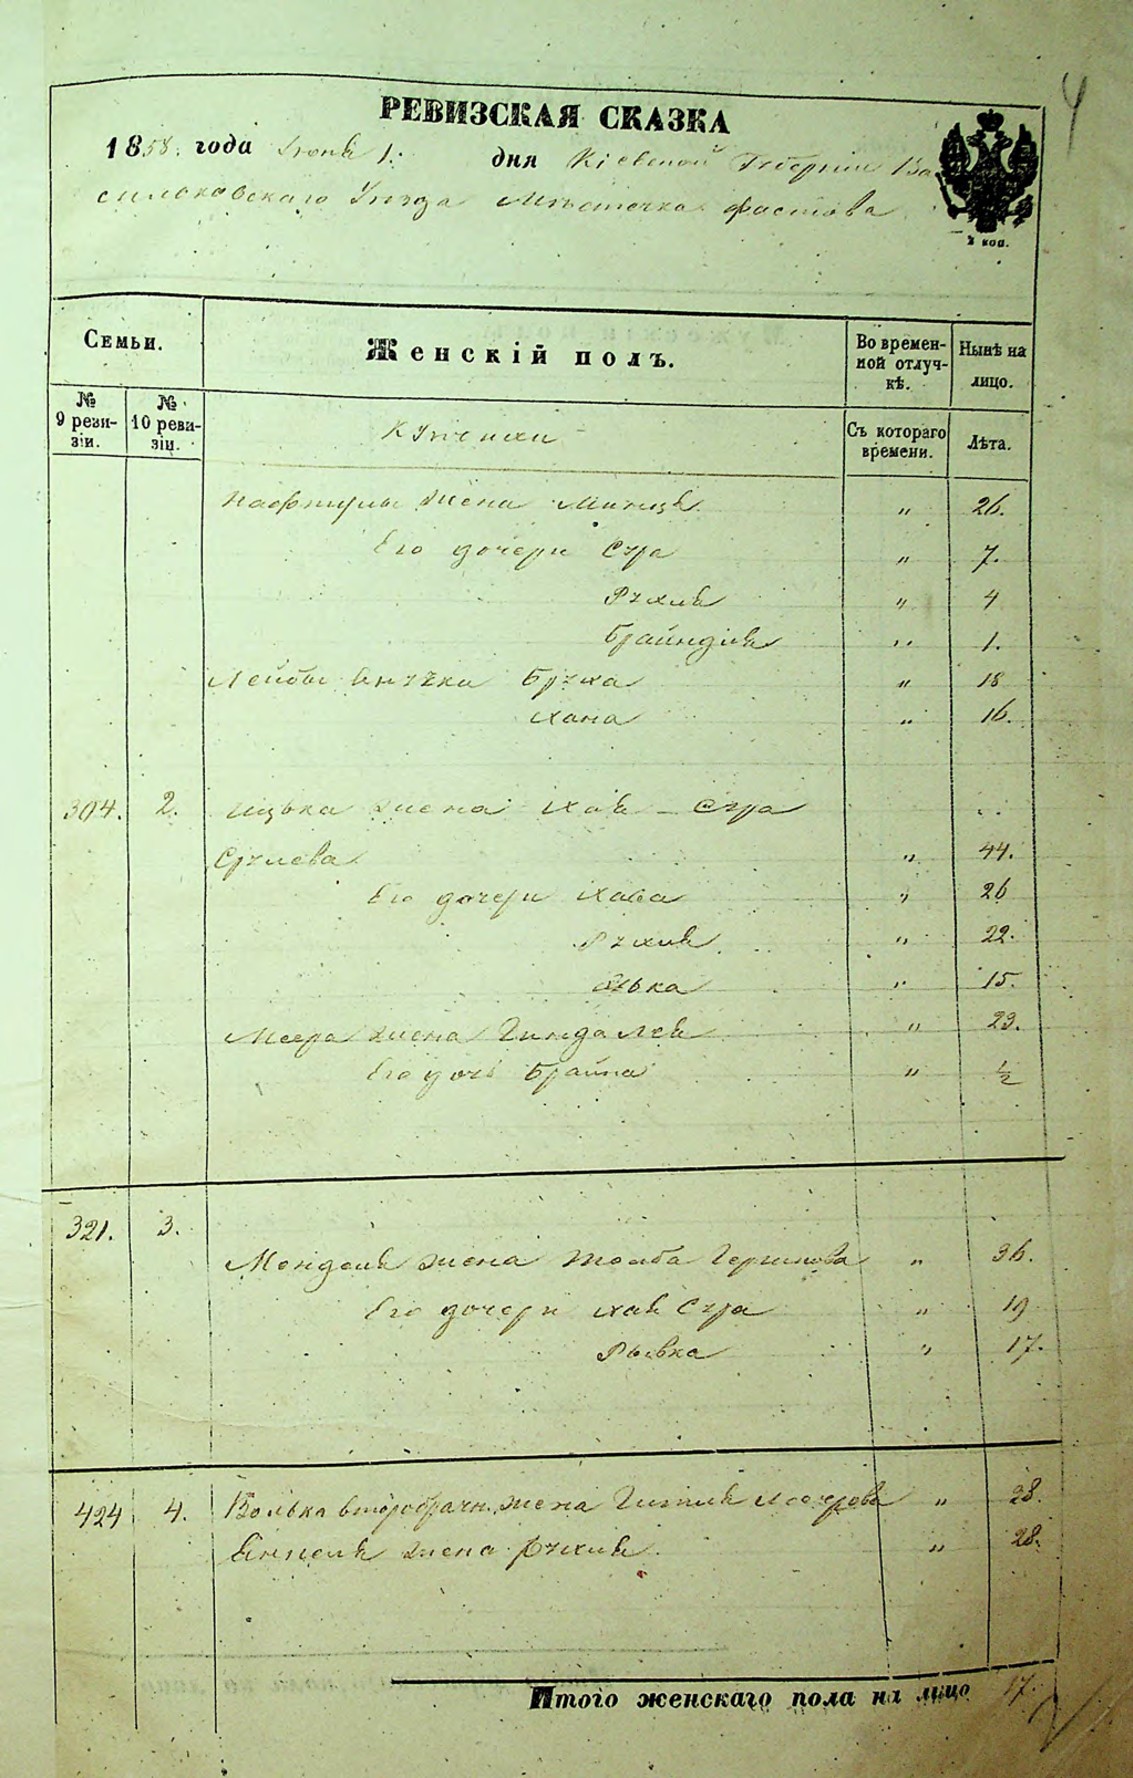 4
РЕВИЗСКАЯ СКАЗКА
1858. года Іюня 1. дня Кіевской Губерніи Ва
сильковскаго Уезда Мѣстечка Фастова
2 коп.
Семьи.
Женскій полъ.
Во времен-
ной отлуч-
кѣ.
Нынѣ на
лицо.
№
9 реви-
зіи.
№
10 реви-
зіи.
Съ котораго
времени.
Лѣта.
Нафтулы жена " 26.
Его дочери Сура " 7.
Рухля " 4
Брайндля " 1.
Лейбы внучки Бруха " 18
Хана " 16.
304. 2. Ицька жена Хая - Сура
Срулева " 44.
Его дочери Хава " 26
Рухля " 22.
" 15.
Меера жена " 23.
Его дочь Брайна " ½
321. 3.
Менделя жена Тоиба Гершкова " 36.
Его дочери Хая Сура " 19
Рывка " 17.
424 4. Волька второбрачн. жена Гитля " 28.
жена Рухля. " 28.
Итого женскаго пола на лицо 17.